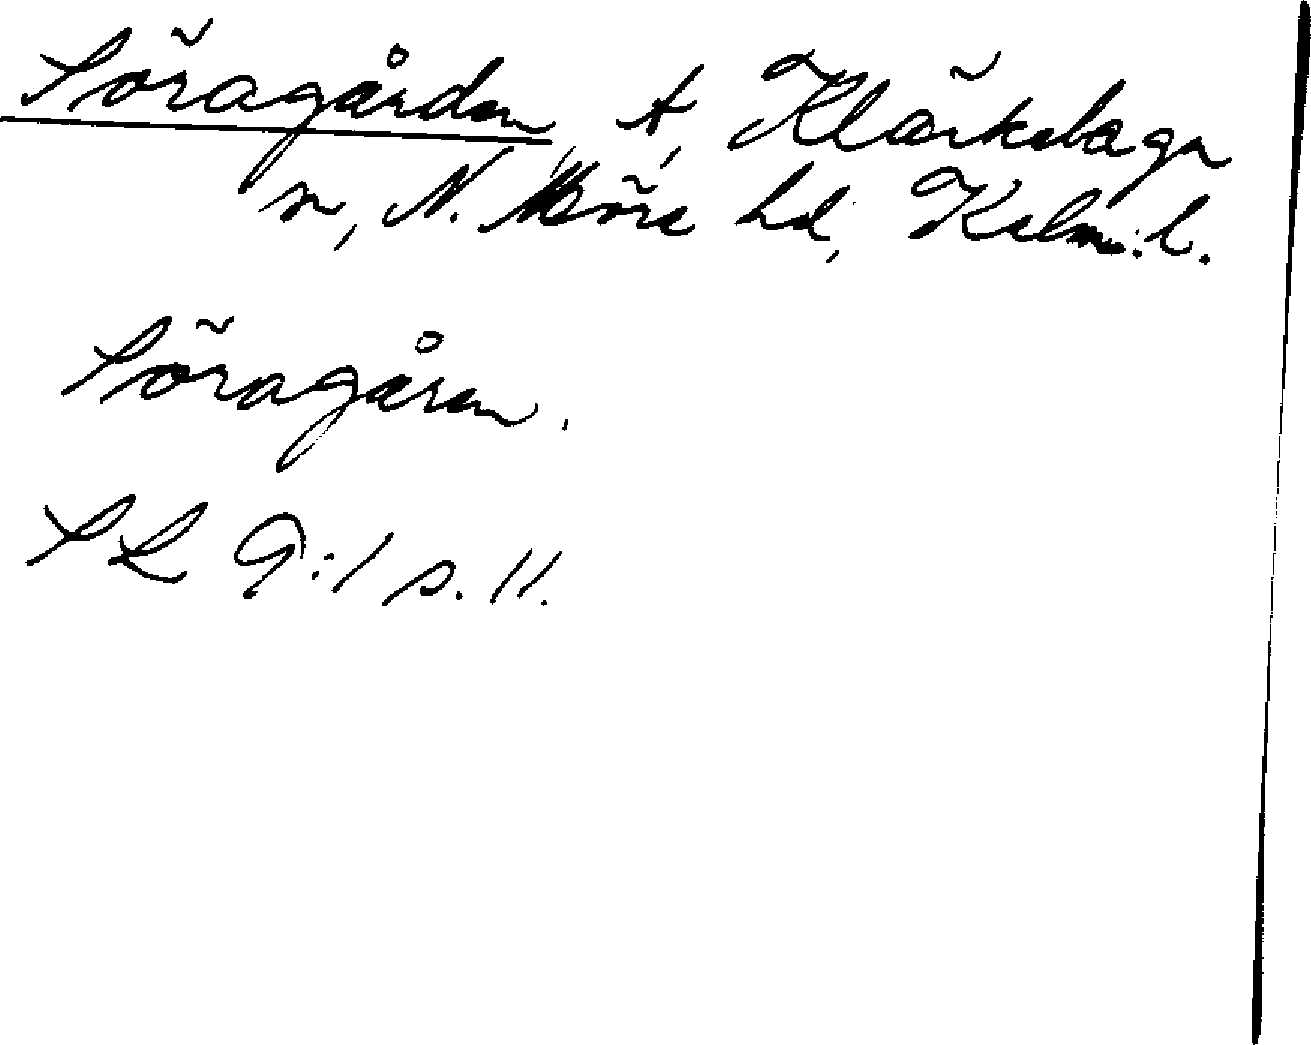 Söragården, t, Kläckeberga
sn, N. Möre hd, Kalm. l.
Söragårn.
SL 9:1 s. 11.